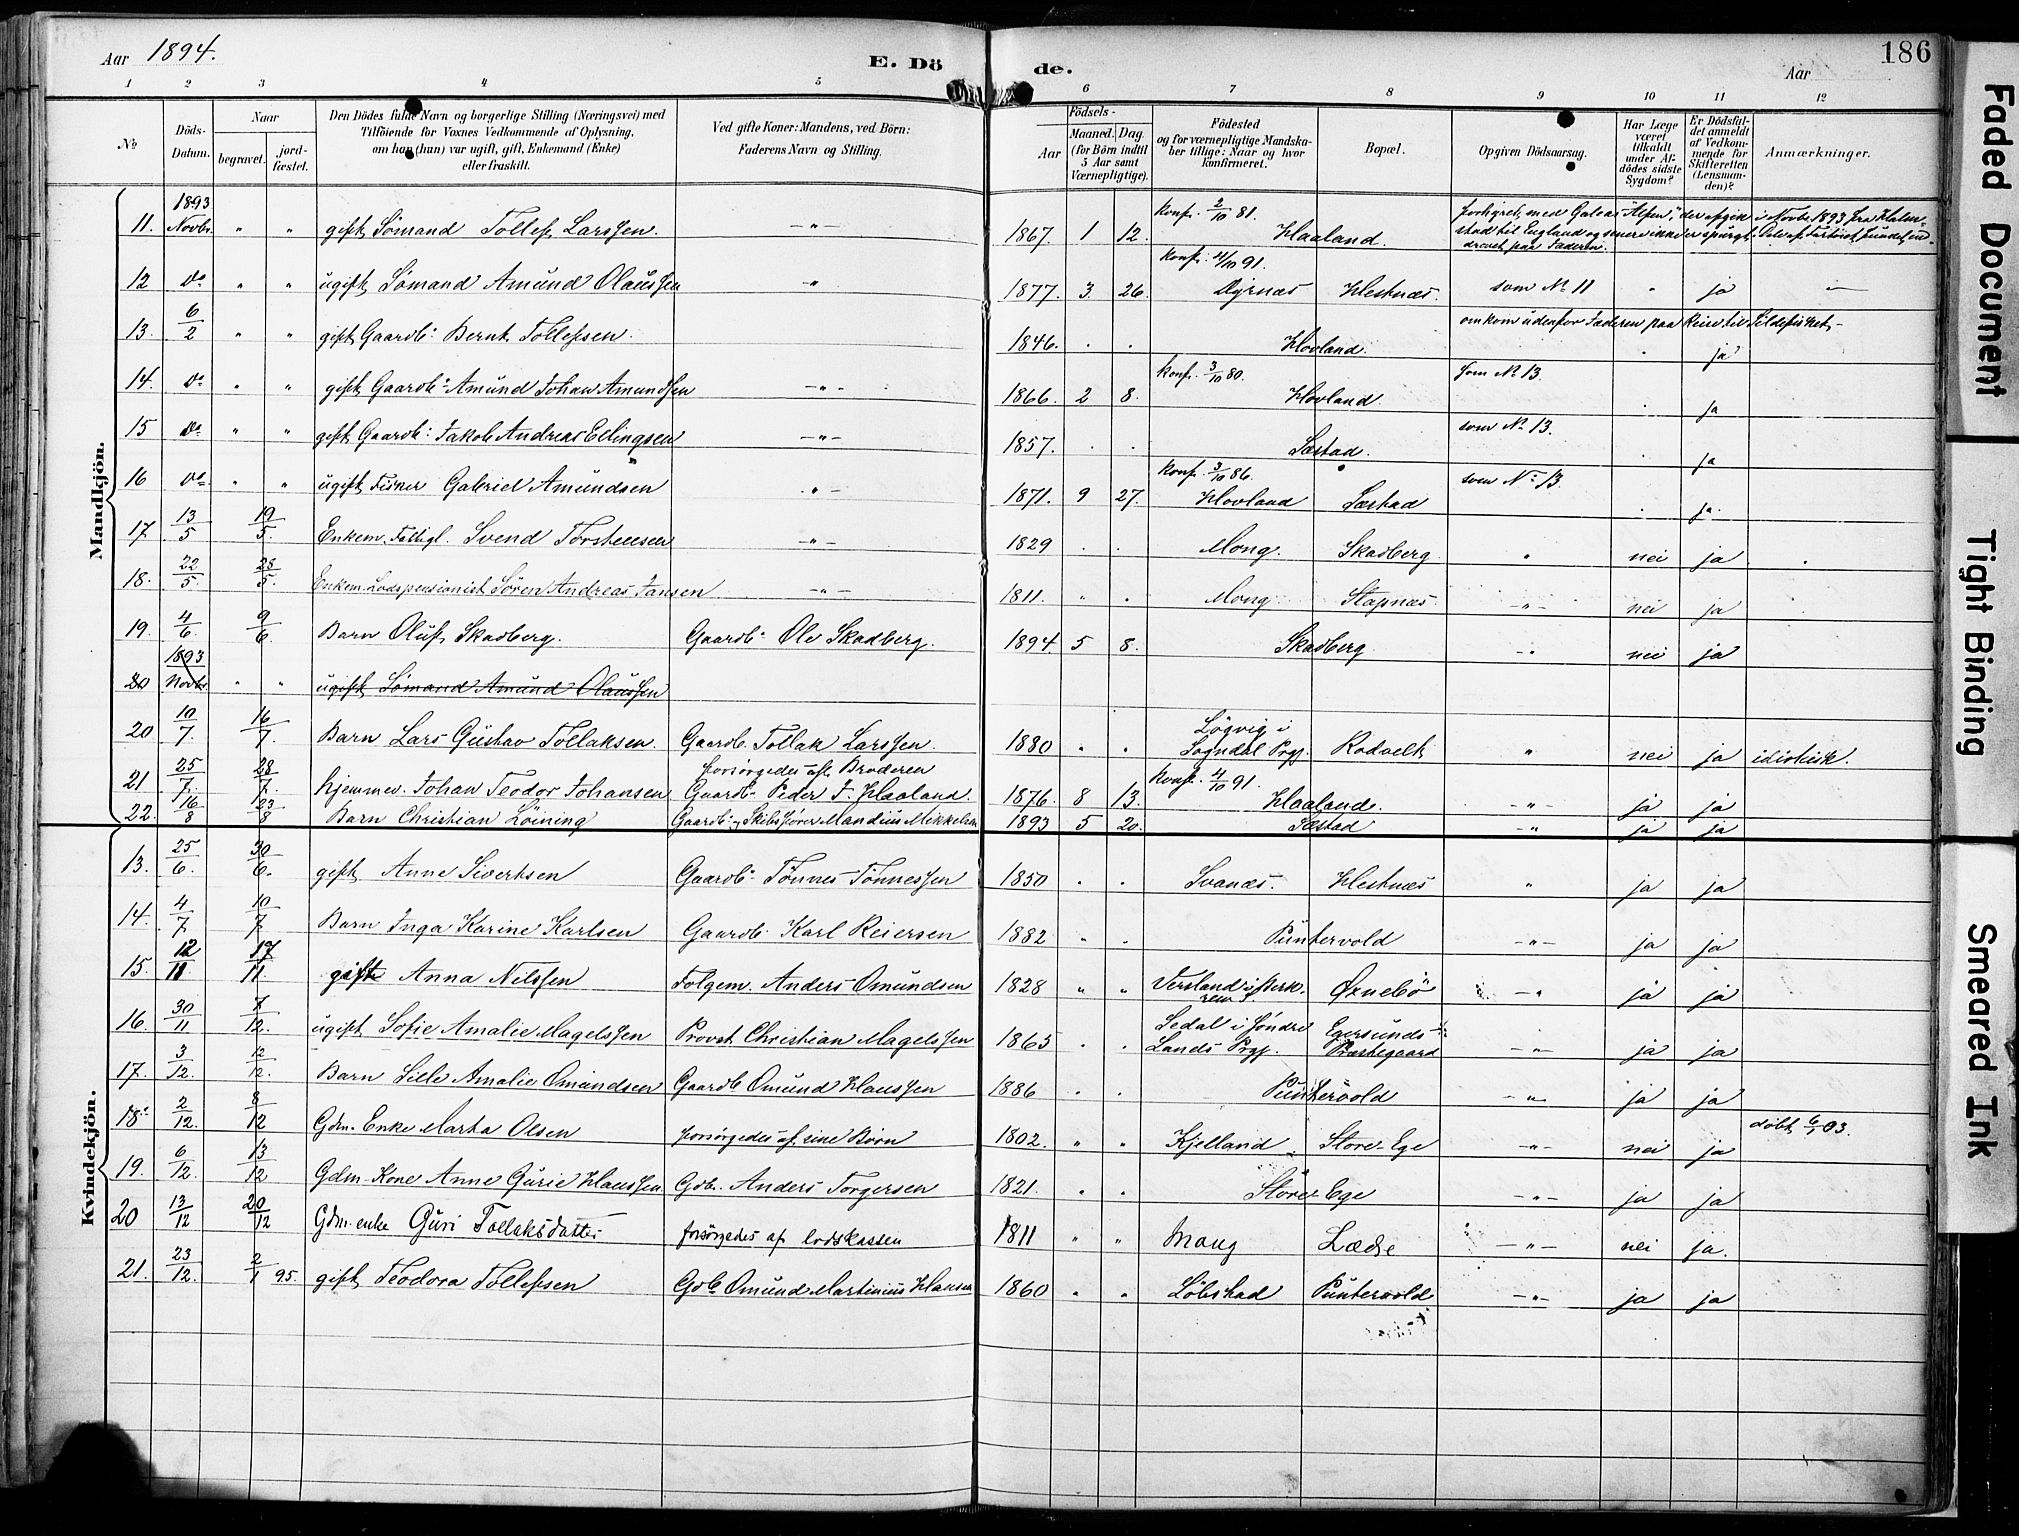 Aar 1894. E. Dö de. Aar 186
1 2 3 4 5 6 7 8 9 10 11 12
№ Döds-Datum. Naar begravet. jordfæstet. Den Dödes fulde Navn og borgerlige Stilling (Næringsvei) med Tilföiende for Voxnes Vedkommende af Oplysning, om han (hun) var ugift, gift, Enkemand (Enke) eller fraskilt. Ved gifte Koner: Mandens, ved Börn: Faderens Navn og Stilling. Födsels- Aar Maaned. Dag. (for Börn indtil 5 Aar samt Værnepligtige). Födested og for værnepligtige Mandskaber tillige: Naar og hvor konfirmeret. Bopæl. Opgiven Dödsaarsag. Har Læge været tilkaldt under Afdödes sidste Sygdom? Er Dödsfaldet anmeldt af Vedkommende for Skifteretten (Lensmanden)? Anmærkninger.
Mandkjön.
11. 1893 Novbr. " " gift Sømand Tollef Larssen. -"- 1867. 1 12. konf. 2/10 81. Haaland. forligt med Galeas "Alfen", der afgik i Novbr 1893 fra Halmstad til England og senere ikke er spurgt. Dele af Fartøiet fundet inddrevet paa Jæderen.
12 do " " ugift Sømand Amund Olaussen " 1877. 3. 26. konf. 4/10 91. Dyrnæs Hestnæs. som No 11 " ja —
13. 6/2 " " gift Gaardb: Bernt Tollefsen. 1846. . . Hovland. omkom udenfor Jæderen paa Reise til Sildefisket- . ja
14. do " " gift Gaardb: Amund Johan Amundsen -"- 1866. 2 8. konf. 3/10 80. Hovland. Som No 13. . ja
15 do " " gift Gaardb: Jakob Andreas Edingsen -"- 1857. . . Sæstad. som No 13. . ja
16 do " " ugift Fisker Gabriel Amundsen -"- 1871. 9 27. konf. 3/10 86. Hovland Sæstad som No 13. . ja.
17. 13/5 19/5. Enkem. Fattigl. Svend Torstensen -"- 1829 . . Mong. Skadberg. " nei ja
18. 22/5. 25/5. Enkem. Lodspensionist Sören Andreas Jansen -"- 1811. " . Mong Stapnæs. -"- nei ja
19. 4/6. 9/6. Barn Oluf Skadberg. Gaardb: Ole Skadberg. 1894 5 8. Skadberg -"- nei ja
20 1893 Novbr " " ugift Sømand Amund Olaussen
20 10/7. 16/7. Barn Lars Gustav Tollaksen. Gaardb. Tollak Larssen. 1880 " " Løgvig i Sogndal Prgj. Rodvelt " nei ja idiotisk.
21 25/7. 28/7. hjemmev. Johan Teodor Johansen forsørgedes af Broderen Gaardb: Peder J. Haaland. 1876. 8 13. konf. 4/10 91. Haaland. -"- ja ja
22. 16/8 23/8 Barn Christian Löining Gaardb: og Skibsfører Mandius Mikkelsen 1893 5 20. Sæstad -"- ja ja
Kvindekjön.
13. 25/6. 30/6. gift Anne Sivertsen Gaardb: Tönnes Tönnessen 1850 " . Svanæs. Hestnæs " ja ja
14. 4/7 10/7 Barn Inga Karine Karlsen Gaardb. Karl Reiersen 1882 " " Puntervold -"- ja ja
15. 12/11 17/11. gift Anna Nilssen Folgem. Anders Omundsen 1828 " " Versland i Herkrem S. Ørnebö -"- ja ja
16. 30/11 7/12. ugift Sofie Amalie Magelssen Provst Christian Magelssen 1865 . . Sedal i Söndre Lands Prgj. Egersunds Præstegaard -"- ja ja
17. 3/12. 12/12. Barn Lille Amalie Omundsen Gaardb Omund Hanssen 1886 . . Puntervold -"- ja ja
18. 2/12. 8/12 Gdm. Enke Marta Olsen forsørgedes af sine Børn 1802. " " Kjelland Store-Ege -"- nei ja döbt 6/1 03.
19. 6/12 13/12 Gdm. Kone Anne Gurie Hanssen Gdb. Anders Torgersen 1821. " " Store Ege -"- ja ja
20 13/12 20/12 Gdm. enke Guri Tollaksdatter forsørgedes af lodskassen 1811 " " Mong Lædre -"- nei ja.
21. 23/12. 2/1 95. gift Teodora Tollefsen Gdb: Omund Martinius Hansen 1860 " " Löbstad Puntervold -"- ja ja
Faded Document
Tight Binding
Smeared Ink